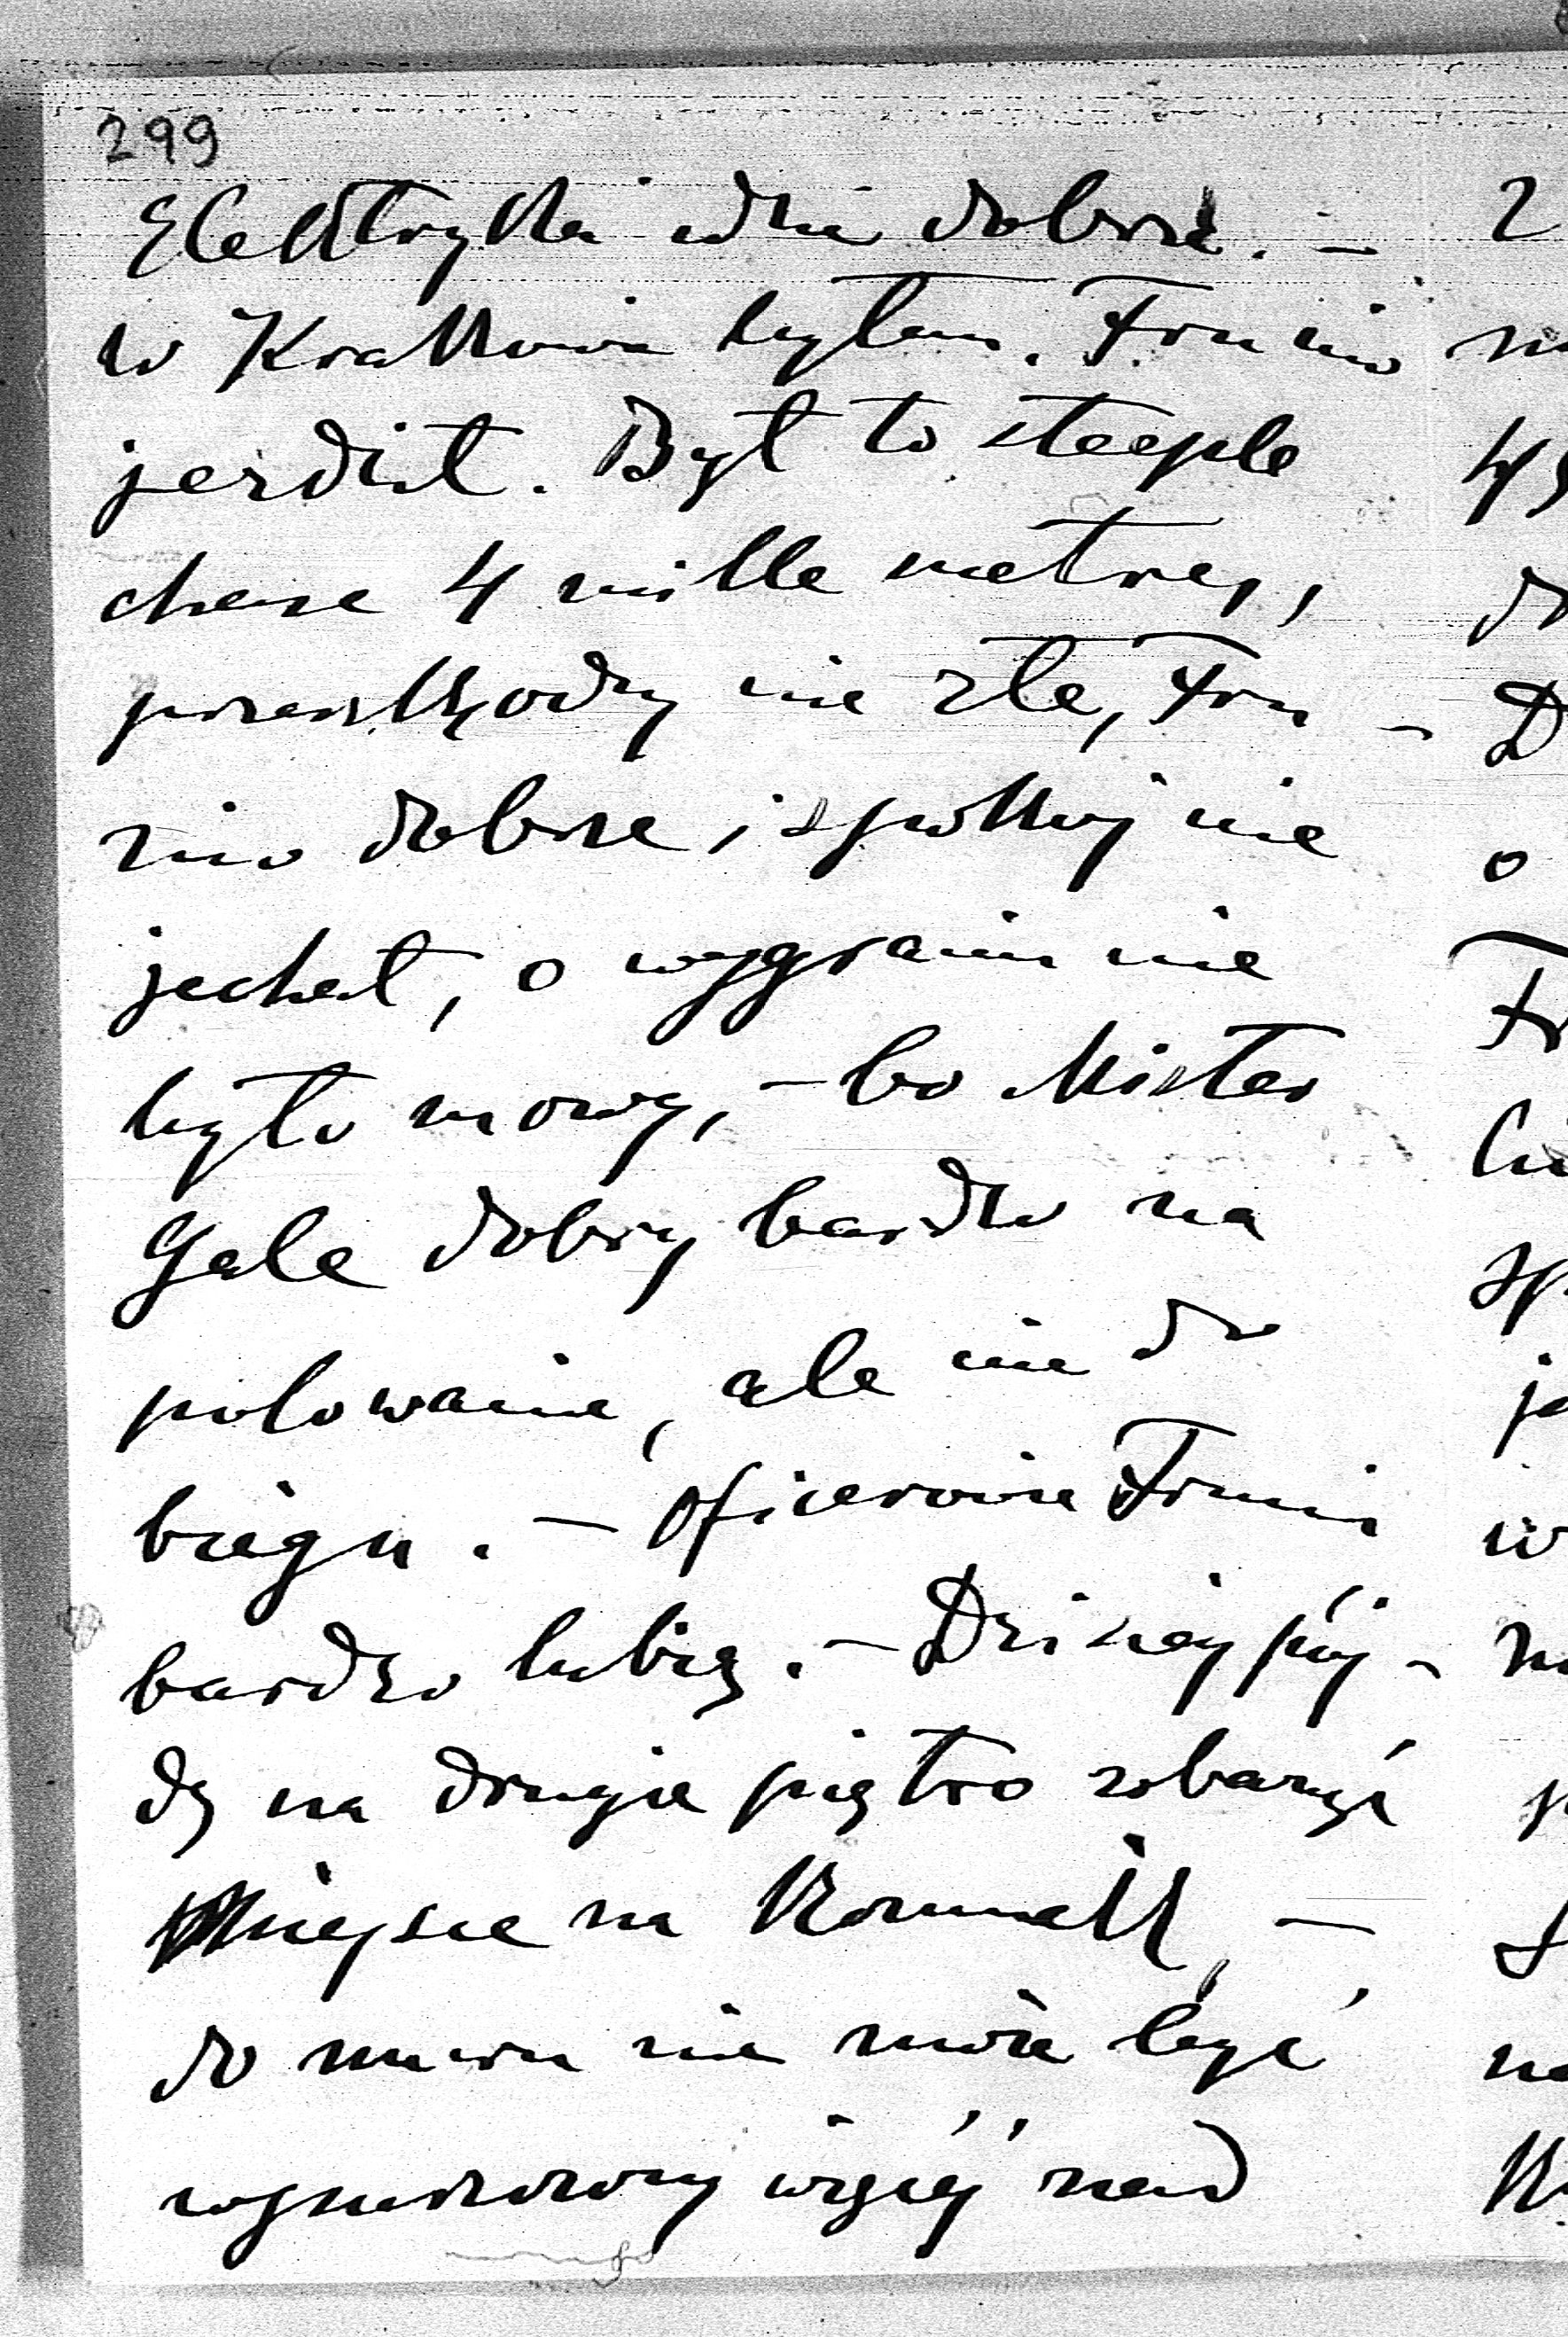 299
Elektryka idzie dobrze. –
w Krakowie byłam. Frunio
jeździł. Był to steeple
chase 4 mille metrey,
przeszkody nie złe, Fru-
nio dobrze i spokojnie
jechał, o wygraniu nie
było mowy, – bo Mister
Gale dobry bardzo na
polowanie, ale nie do
biegu. – Oficerowie Frunia
bardzo lubią. – Dzisiej pój-
dę na drugie piętro zobaczyć
Miejsce na Kominek, –
do muru nie może być
wymurowany więcéj nad